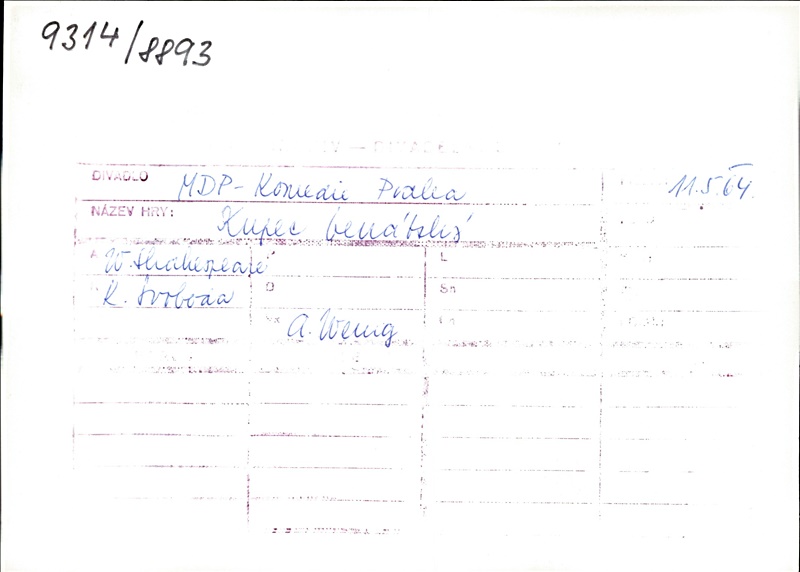 9314/8893
DIVADLO MDP - Komedie Praha 11.5.64.
NÁZEV HRY: Kupec benátský
W. Shakespeare L
K. Svoboda D Sn
A. Wenig